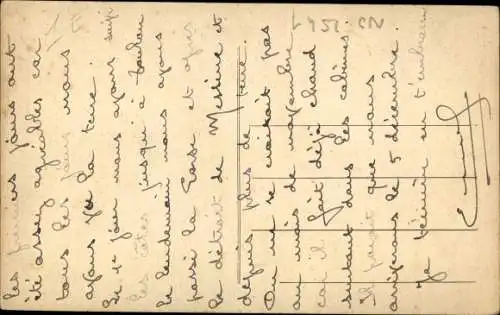 Les premiers jours ont
été assez agréables car
tous les jours nous
avons vu la terre.
Le 1er jour nous avons suivi
les côtes jusqu'à Toulon
le lendemain nous avons
passé la Corse et
le détroit de Messine et
depuis plus de terre.
On ne se croirait pas
au mois de novembre
car il fait déjà chaud
surtout dans les cabines.
Il paraît que nous
arriverons le 5 décembre.
Je termine en t'embrassant